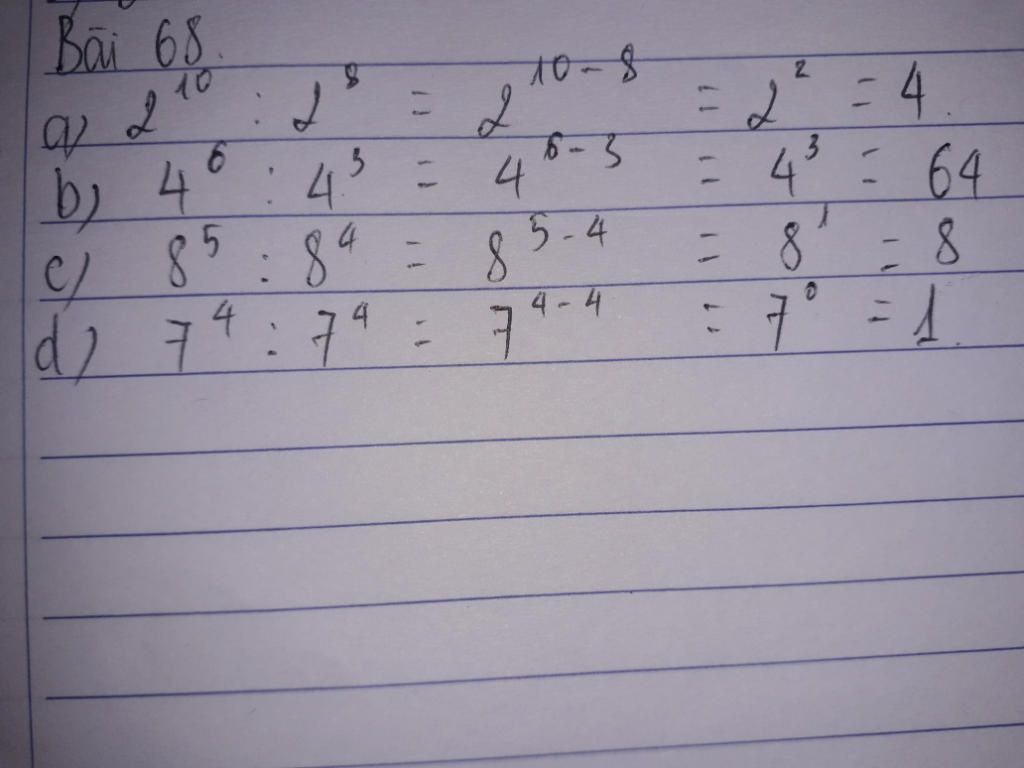 Bài 68.
a) 2¹⁰ : 2⁸ = 2¹⁰⁻⁸ = 2² = 4.
b) 4⁶ : 4³ = 4⁶⁻³ = 4³ = 64
c) 8⁵ : 8⁴ = 8⁵⁻⁴ = 8¹ = 8
d) 7⁴ : 7⁴ = 7⁴⁻⁴ = 7⁰ = 1.